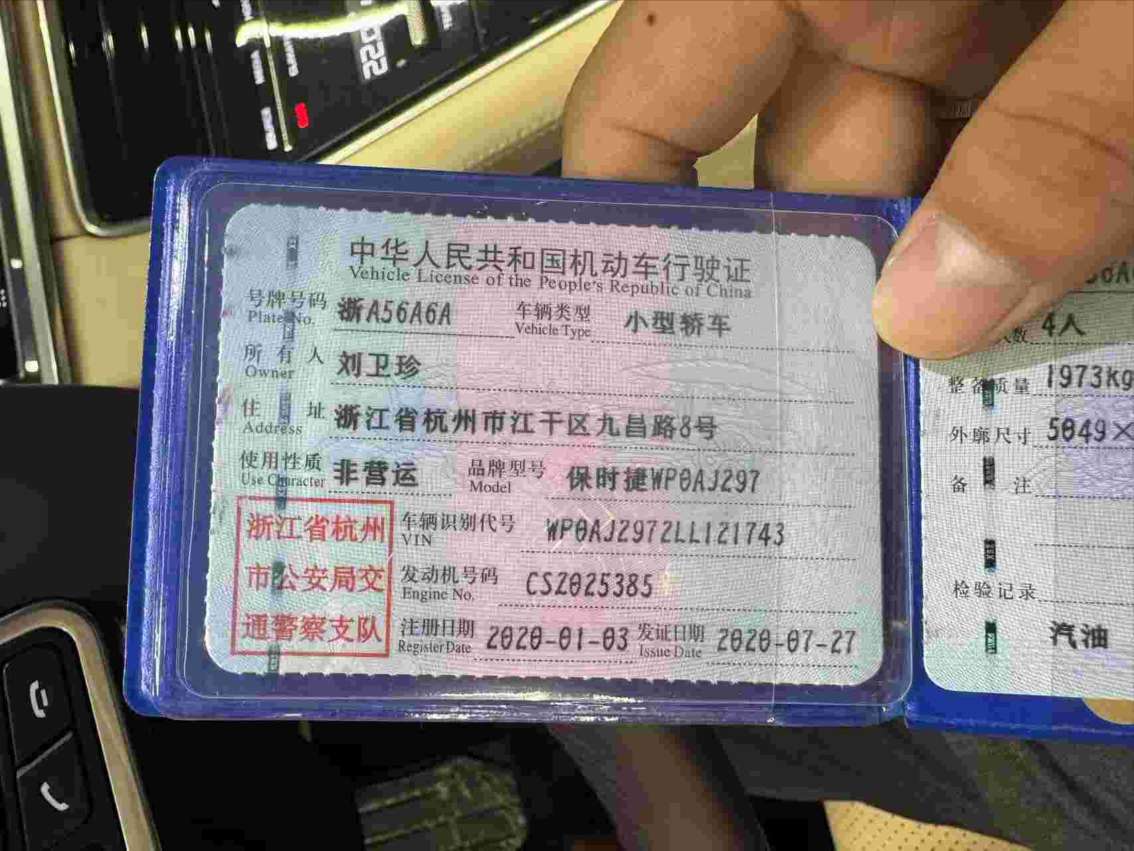 中华人民共和国机动车行驶证
Vehicle License of the People's Republic of China
号牌号码 浙A56A6A 车辆类型 小型轿车
Plate No. Vehicle Type
所有人 刘卫珍
Owner
住址 浙江省杭州市江干区九昌路8号
Address
使用性质 非营运 品牌型号 保时捷WP0AJ297
Use Character Model
浙江省杭州
市公安局交
通警察支队
车辆识别代号 WP0AJ2972LL121743
VIN
发动机号码 CSZ025385
Engine No.
注册日期 2020-01-03 发证日期 2020-07-27
Register Date Issue Date
人数 4人
整备质量 1973kg
外廓尺寸 5049×
备注
检验记录
汽油